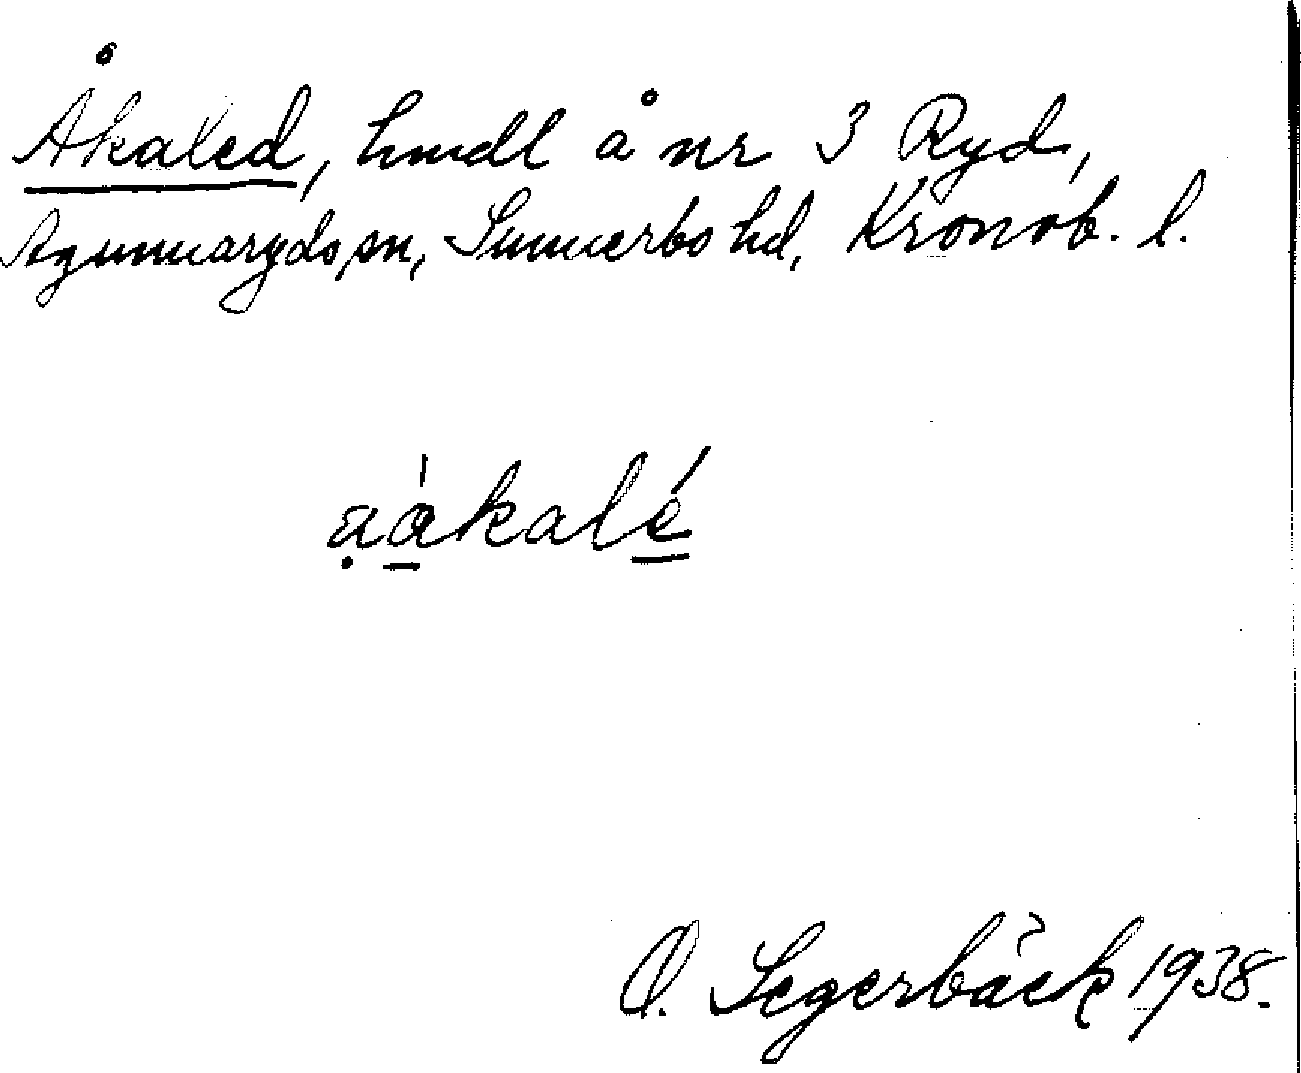 Åkaled, hmdl å nr 3 Ryd,
Agunnaryds sn, Sunnerbo hd, Kronob. l.
aákalé
O. Segerbäck 1938.